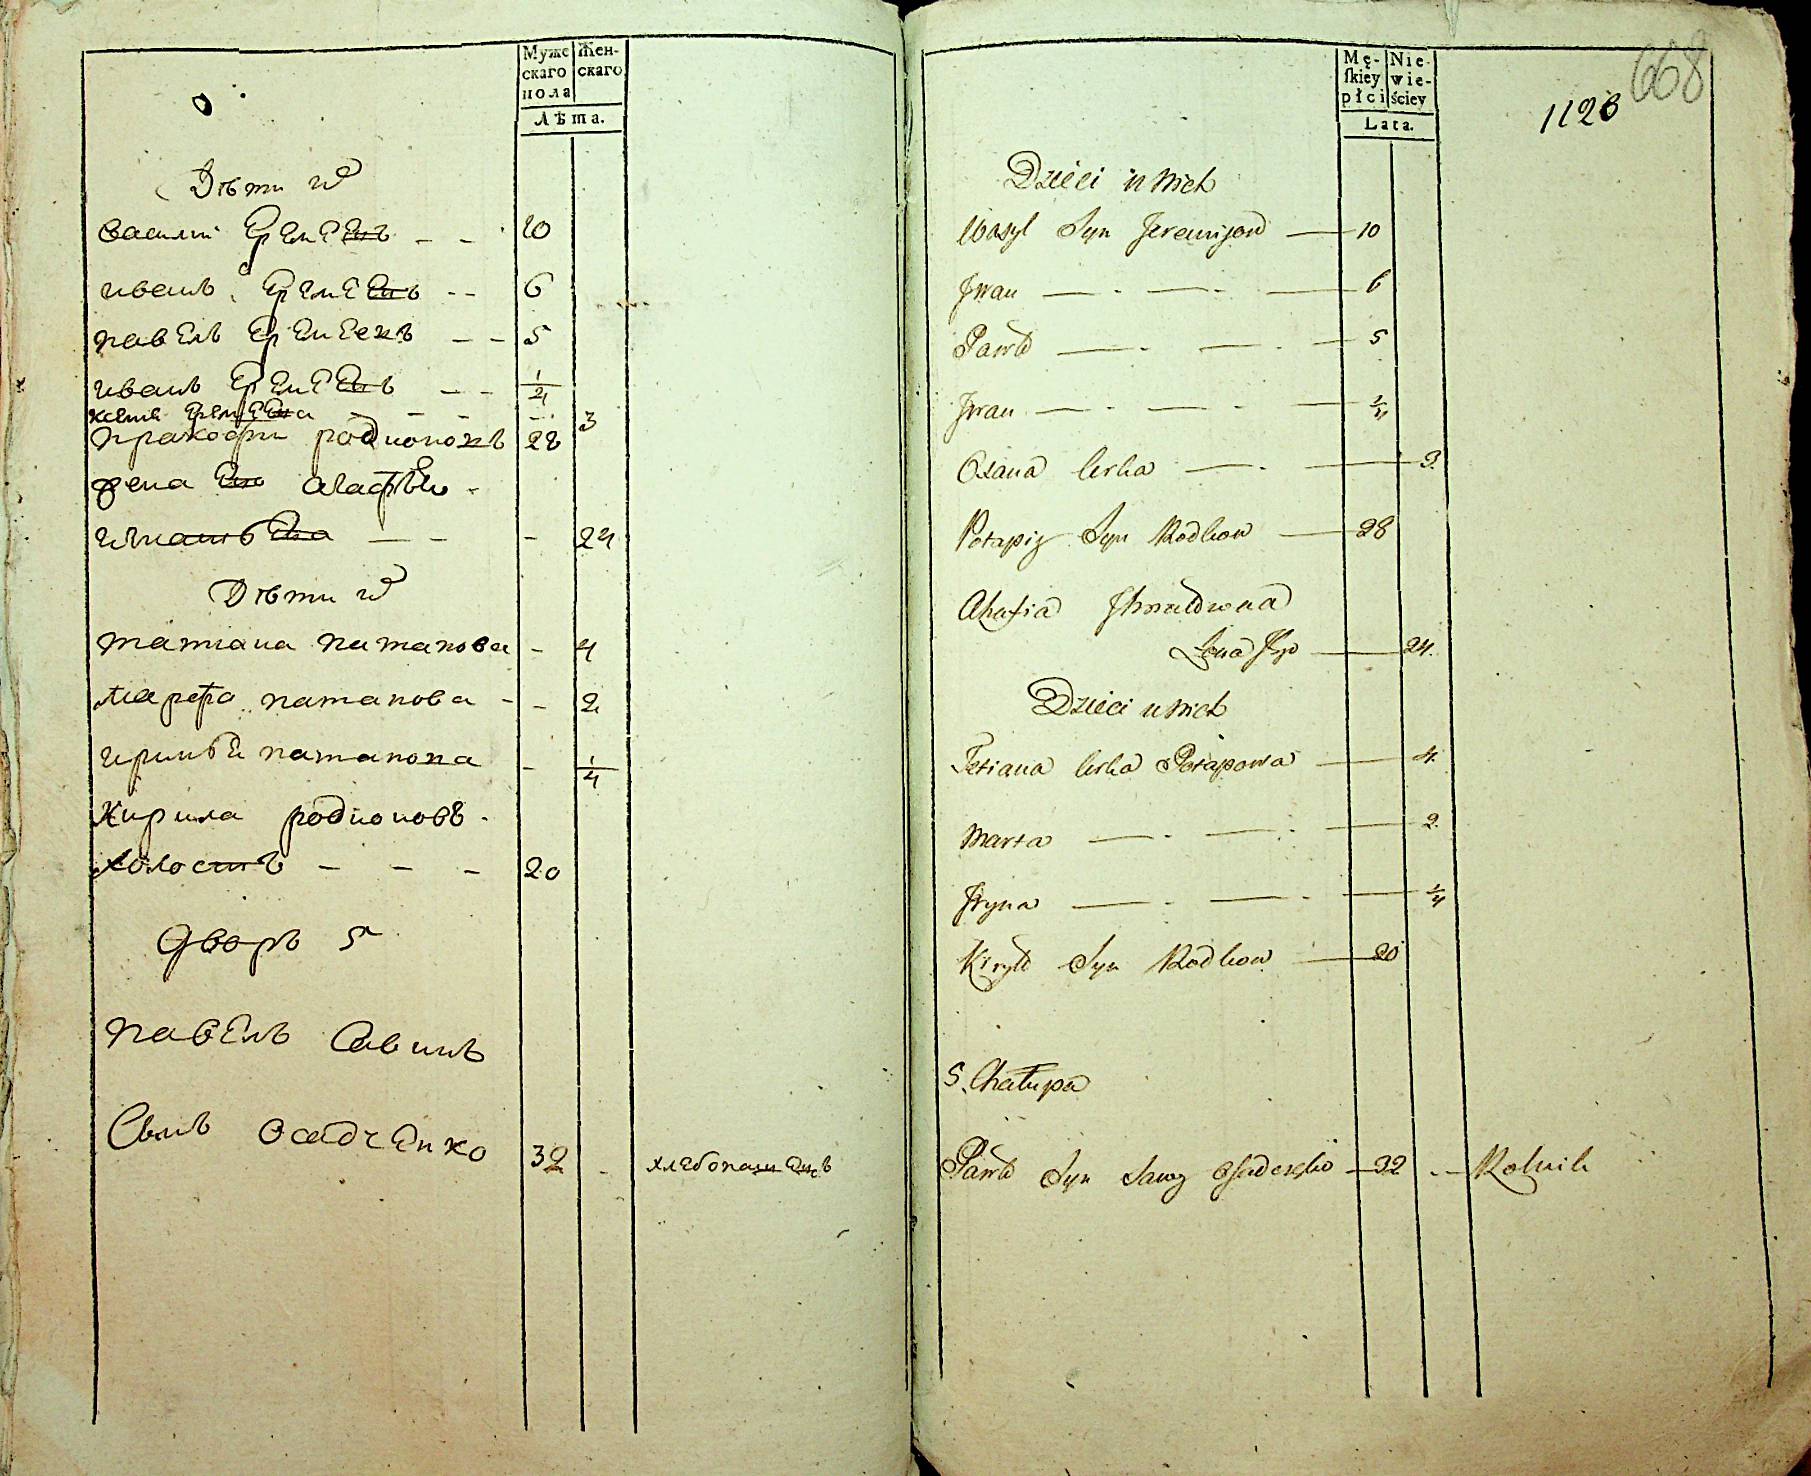 Муже
скаго
пола
Жен-
скаго
Лѣта.
Дѣти
василий 10
иванъ 6
павелъ 5
иванъ 1/4
3
родионовъ 28
жена его агафья
24
Дѣти
татиана патапова - 4
марфа патапова - - 2
ирина патапова - 1/4
кирила родионовъ -
холостъ - - - 20
Дворъ 5
павелъ савинъ
сынъ осадченко 32 - хлебопашецъ
Mę-
skiey
płci
Nie-
wie-
ściey
Lata.
668
1126
Dzieci u nich
Wasyl Syn Jeremijow 10
Jwan 6
Paweł 5
Jwan 1/4
Oxana Corka 3.
Potapiy Syn Rodkow 28
Ahafia
Żona Jego 24.
Dzieci u nich
Tetiana Corka Potapowa 4.
Marta 2.
Jryna 1/4
Kiryło Syn Rodkow 20
5. Chałupa
Paweł Syn Sawy 32 - - Rolnik